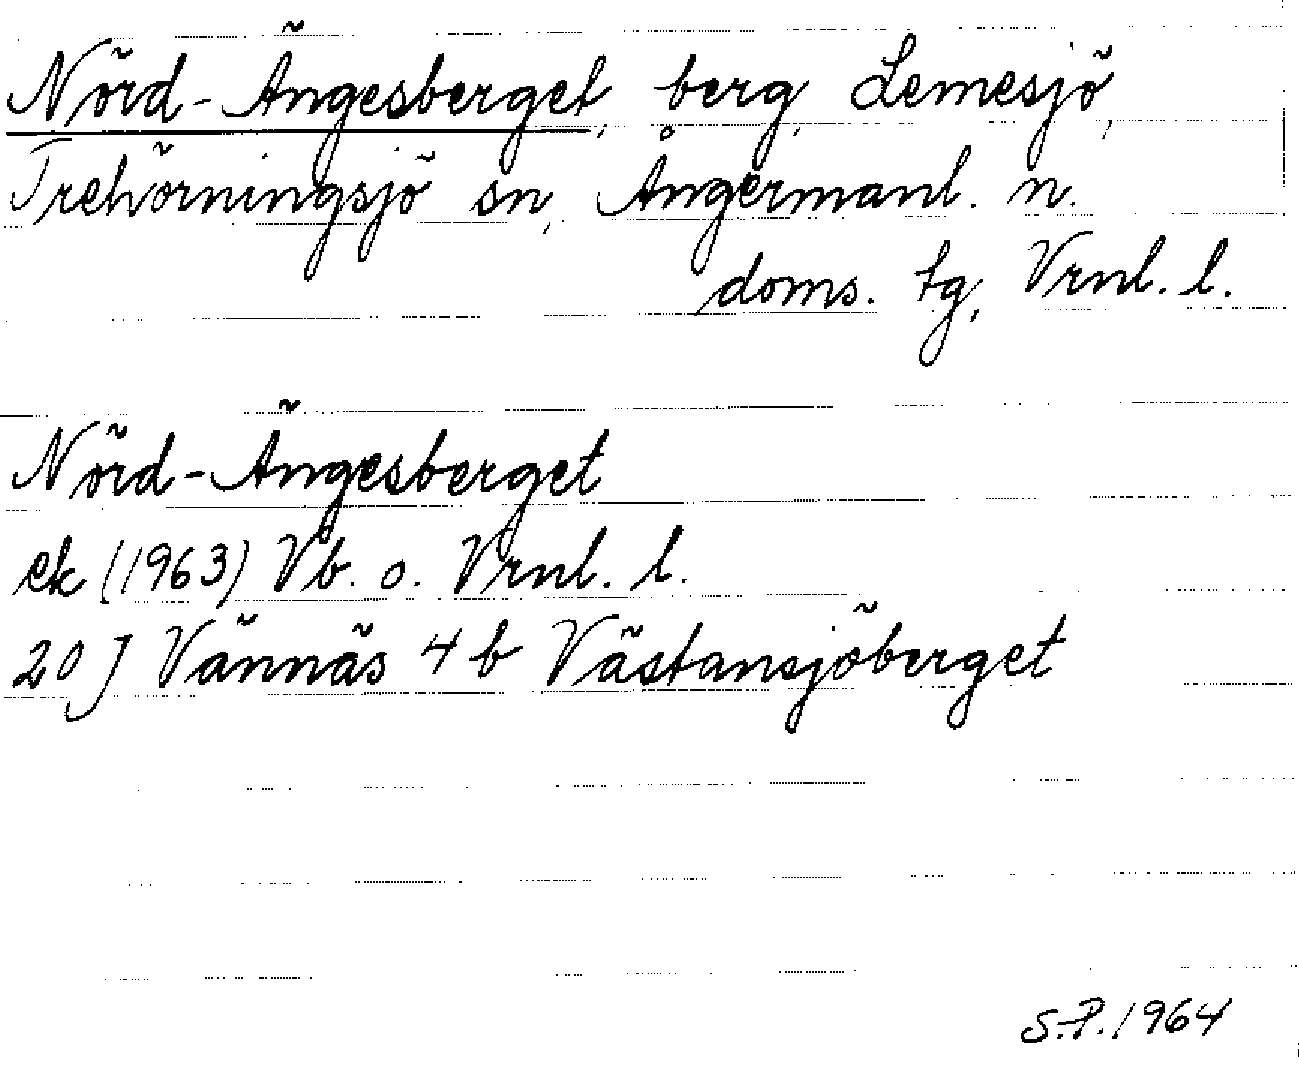 Nörd-Ängesberget, berg, Lemesjö,
Trehörningsjö sn, Ångermanl. n.
doms. tg, Vrnl. l.
Nörd-Ängesberget
ek (1963) Vb. o. Vrnl. l.
20 J Vännäs 4 b Västansjöberget
S.P. 1964